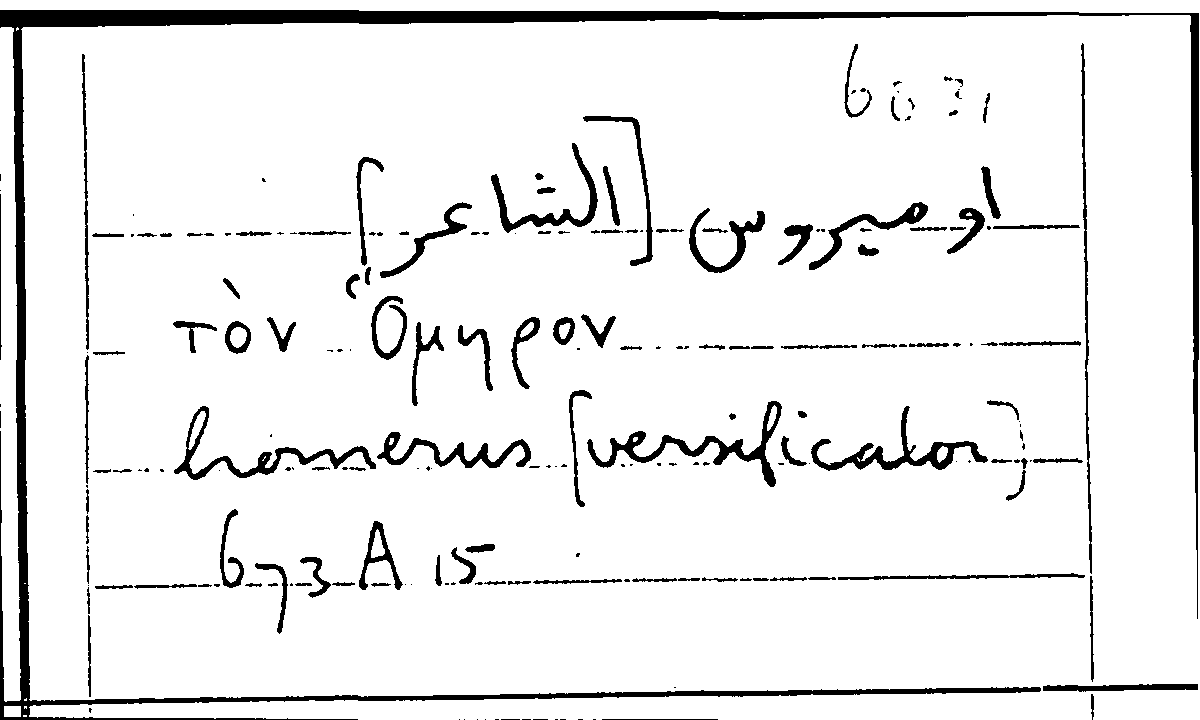 6031
اوميروس [الشاعر]
τὸν Ὅμηρον
homerus [versificator]
673 A 15